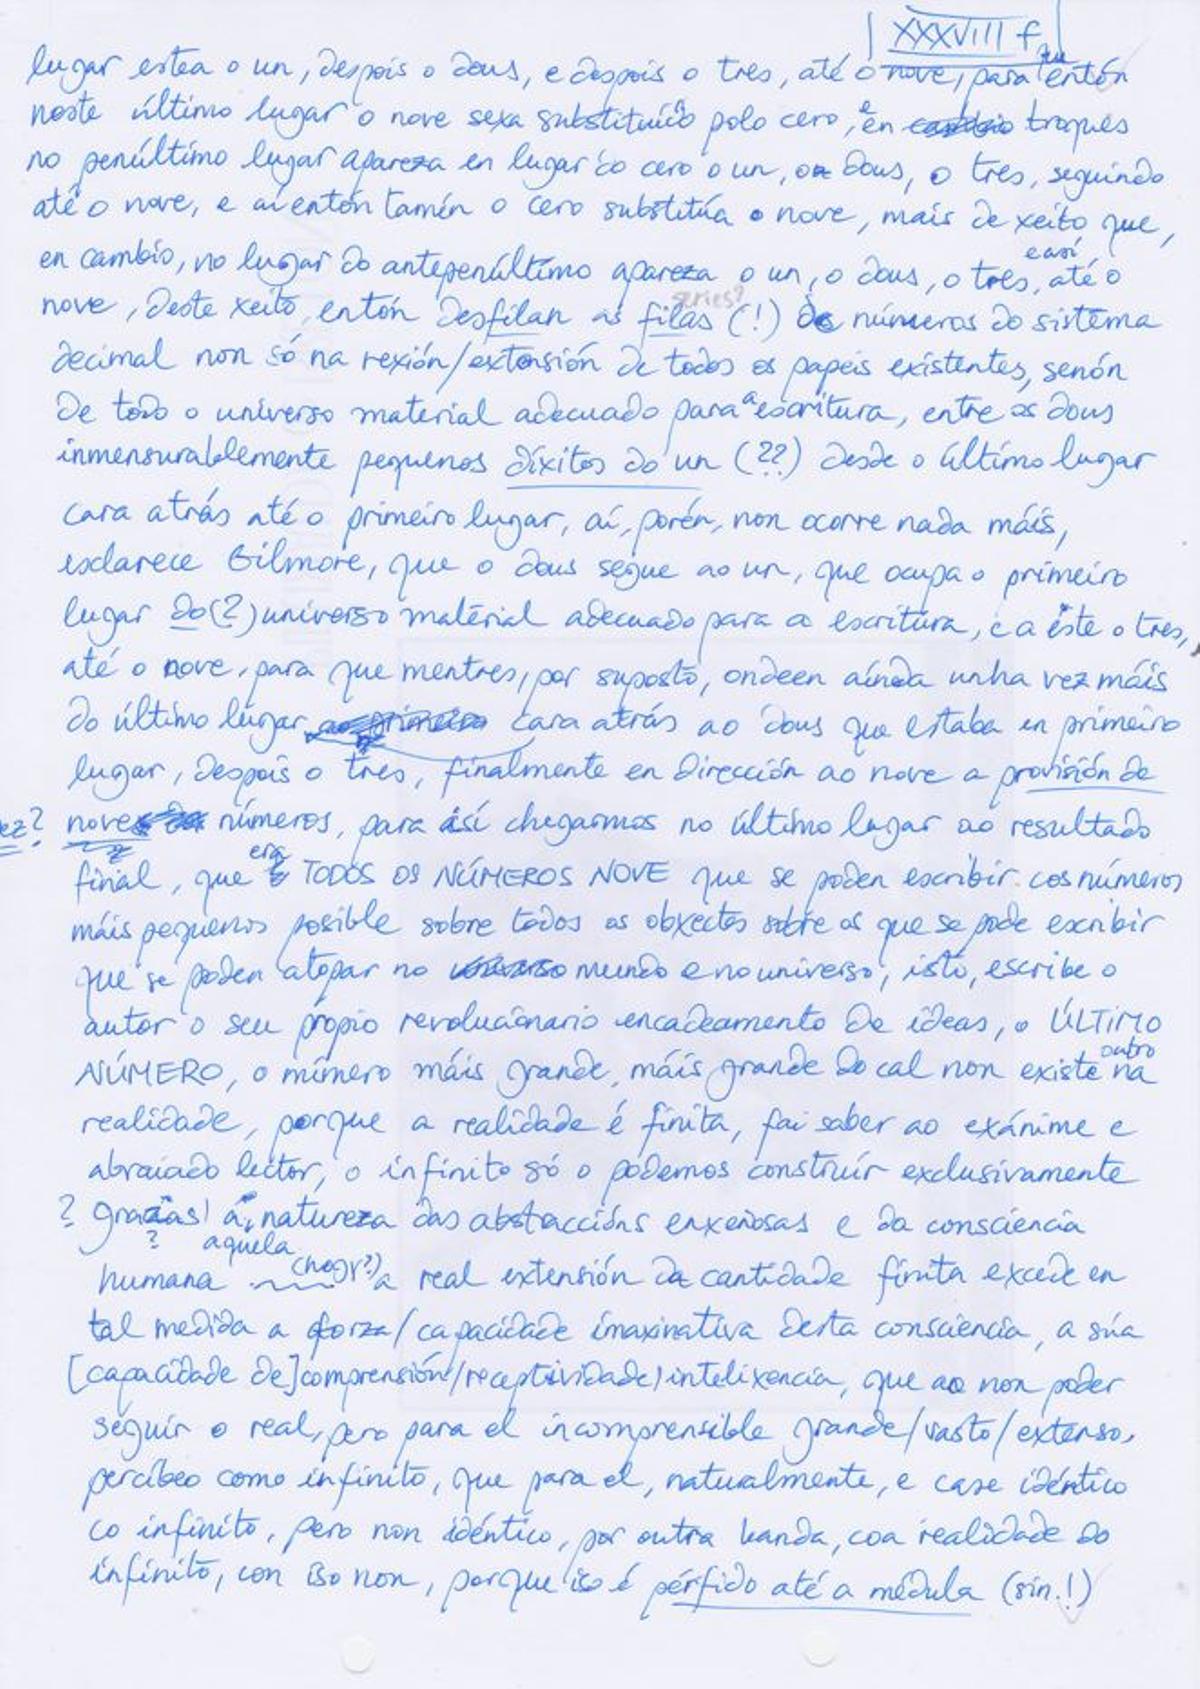 XXXVIII f
lugar estea o un, despois o dous, e despois o tres, até o nove, para que entón
neste último lugar o nove sexa substituído polo cero, e en troques
no penúltimo lugar apareza en lugar do cero o un, o dous, o tres, seguindo
até o nove, e aí entón tamén o cero substitúa o nove, mais de xeito que,
en cambio, no lugar do antepenúltimo apareza o un, o dous, o tres, e así até o
nove, deste xeito, entón desfilan as filas (!) series? de números do sistema
decimal non só na rexión/extensión de todos os papeis existentes, senón
de todo o universo material adecuado para a escritura, entre os dous
inmensurablemente pequenos díxitos do un (??) desde o último lugar
cara atrás até o primeiro lugar, aí, porén, non ocorre nada máis,
esclarece Gilmore, que o dous segue ao un, que ocupa o primeiro
lugar do(?) universo material adecuado para a escritura, e a este o tres,
até o nove, para que mentres, por suposto, ondeen aínda unha vez máis
do último lugar cara atrás ao dous que estaba en primeiro
lugar, despois o tres, finalmente en dirección ao nove a provisión de
ez? nove números, para así chegarmos no último lugar ao resultado
final, que era TODOS OS NÚMEROS NOVE que se poden escribir cos números
máis pequenos posible sobre todos os obxectos sobre os que se pode escribir
que se poden atopar no mundo e no universo, isto, escribe o
autor o seu propio revolucionario encadeamento de ideas, o ÚLTIMO
NÚMERO, o número máis grande, máis grande do cal non existe outro na
realidade, porque a realidade é finita, fai saber ao exánime e
abraiado lector, o infinito só o podemos construír exclusivamente
? grazas á natureza das abstraccións enxeñosas e da consciencia
? aquela
humana (chegr?) a real extensión da cantidade finita excede en
tal medida a forza/capacidade imaxinativa desta consciencia, a súa
[capacidade de]comprensión/receptividade/intelixencia, que ao non poder
seguir o real, pero para el incomprensible grande/vasto/extenso,
percibeo como infinito, que para el, naturalmente, e case idéntico
co infinito, pero non idéntico, por outra banda, coa realidade do
infinito, con iso non, porque iso é pérfido até a médula (sin.!)